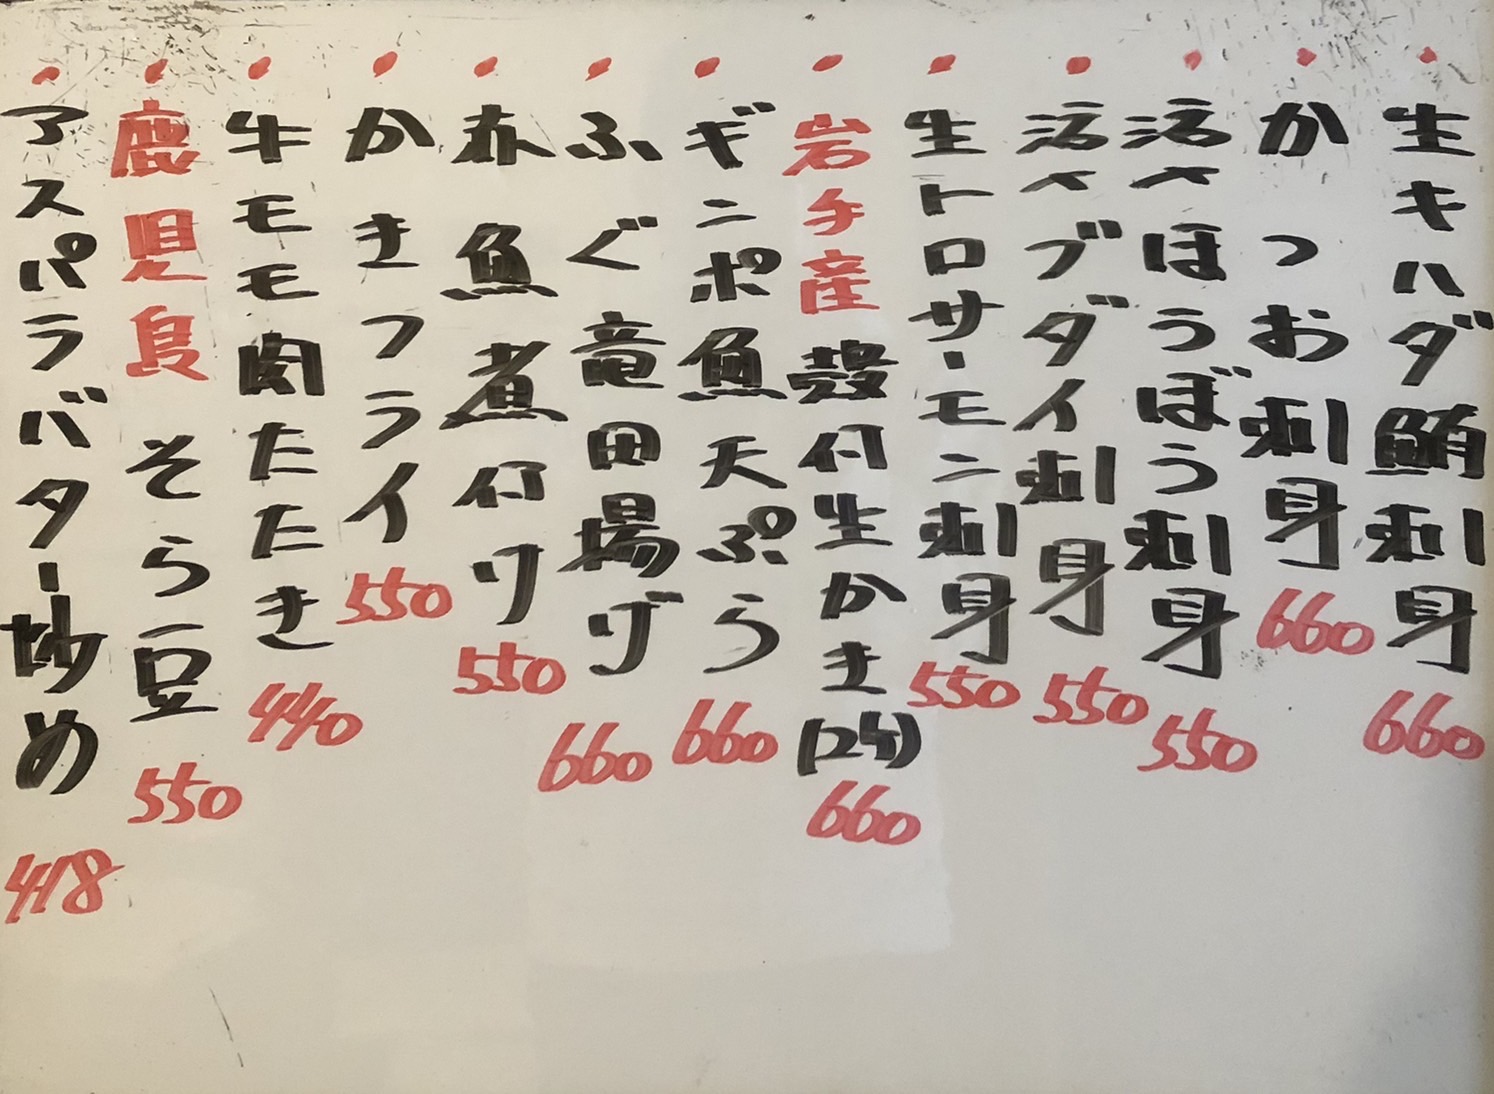 ・生キハダ鮪刺身 660
・かつお刺身 660
・活〆ほうぼう刺身 550
・活〆ブダイ刺身 550
・生トロサーモン刺身 550
・岩手産殻付生かき(2ケ) 660
・ギンポ魚天ぷら 660
・ふぐ竜田揚げ 660
・赤魚煮付け 550
・かきフライ 550
・牛モモ肉たたき 440
・鹿児島そら豆 550
・アスパラバター炒め 418